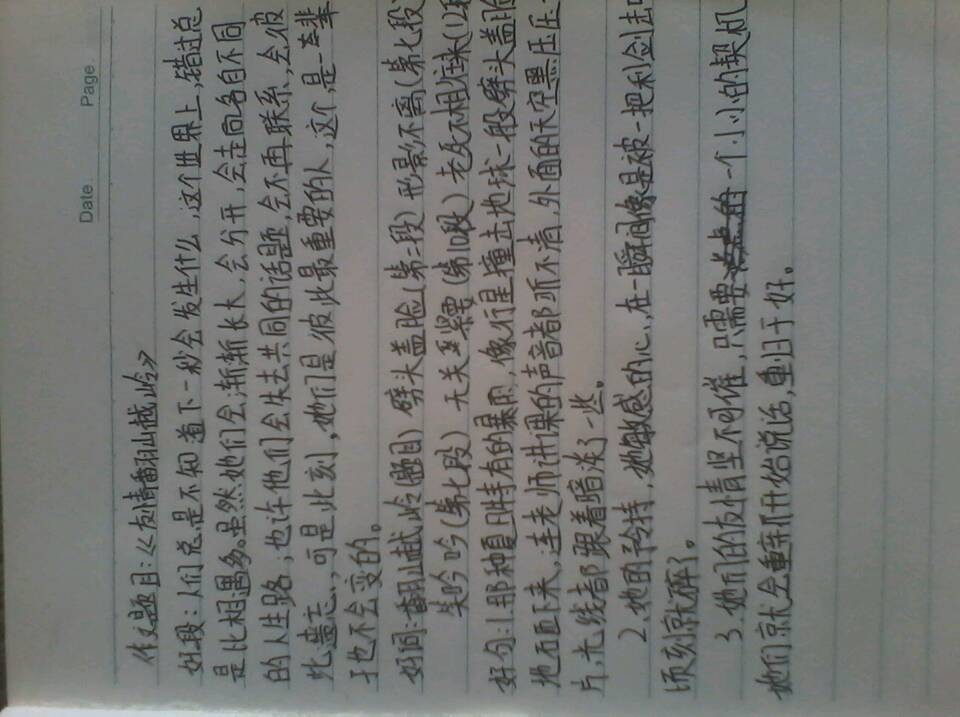 Date. Page.
作文题目:《友情翻山越岭》
好段:人们总是不知道下一秒会发生什么,这个世界上,错过总
是比相遇多。虽然她们会渐渐长大,会分开,会走向各自不同
的人生路;也许他们会失去共同的话题,会不再联系,会彼
此遗忘、可是此刻,她们是彼此最重要的人,这个,是一辈
子也不会变的。
好词:翻山越岭(题目) 劈头盖脸(第二段) 形影不离(第七段)
笑吟吟(第七段) 无关紧要(第10段) 老死不相往来(12段
好句:1.那种夏日特有的暴雨,像行星撞击地球一般劈头盖脸
地砸下来,连老师讲课的声音都听不清,外面的天空黑压压一
片,光线都跟着暗淡了一些。
2.她的矜持,她敏感的心,在一瞬间像是被一把利剑击中
顷刻就碎了。
3.她们的友情坚不可催,只需要一个小小的契机
她们就会重新开始说话,重归于好。